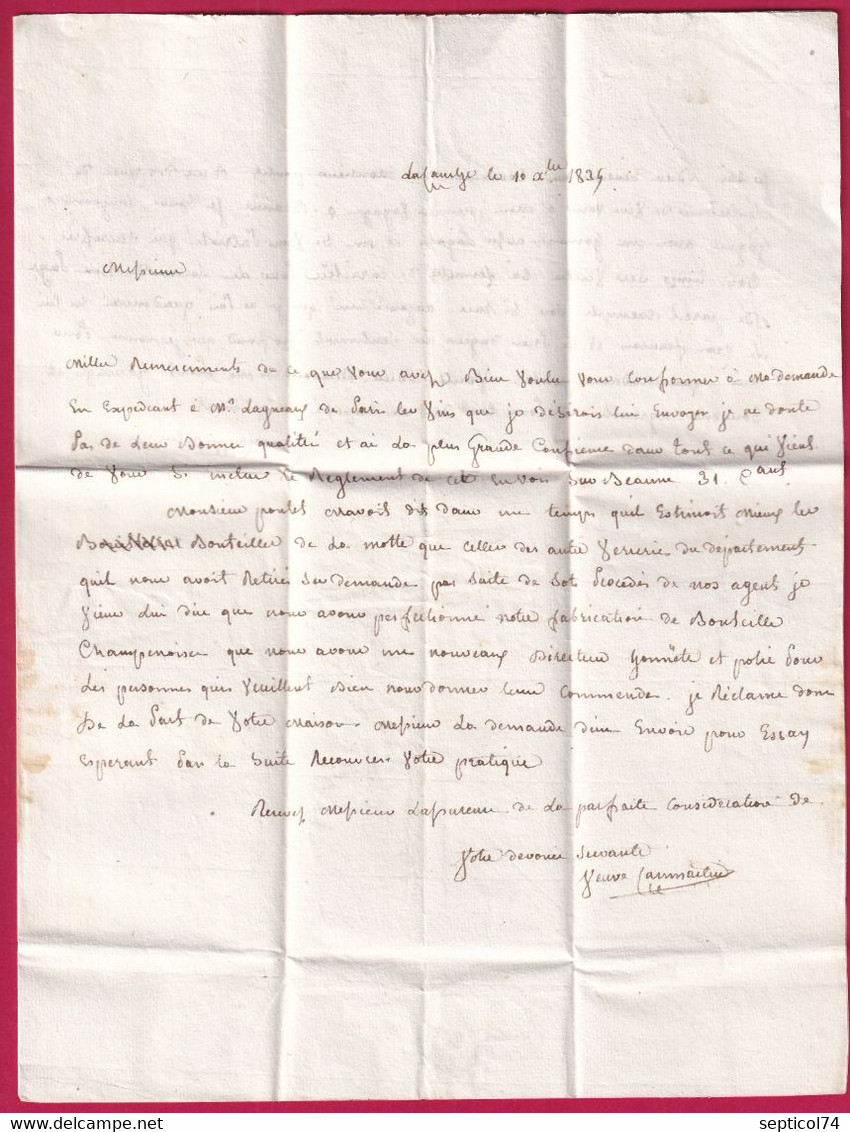 le 10 Xbre 1835
Messieurs
Mille Remerciments de ce que vous avez Bien voulu vous conformer à Ma demande
En Expédiant à Mr. Lagneaux de Paris les vins que je désirois lui Envoyer je ne doute
Pas de Leur Bonne qualité et ai La plus Grande Confience dans tout ce qui vient
de vous si inclus Le Reglement de cet envois sur Beaune 31. Cant
Monsieur poulet M'avoit dit dans un temps quil Estimoit Mieux les
Bouteilles de La motte que celles des autre verrerie du département
quil nous avoit Retirés sa demande par suite de sots Procedés de nos agent je
viens Lui dire que nous avons perfectionné notre fabrication de Bouteille
Champenoises que nous avons un nouveaux Directeur honnête et polie pour
Les personnes quis veuillent Bien nous donner leur Commende. je Réclame donc
De La Part de votre Maison. Messieur La demande d'un Envoie pour Essay
Esperant Par la suite Reconver votre pratique
Recevez Messieur L'assurence de La parfaite Consideration de
Votre devouée servante
Veuve
septicol74